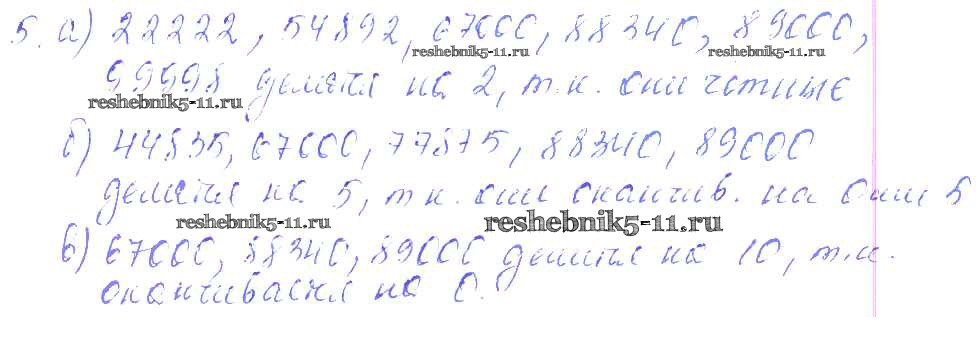 5. а) 22222, 54892, 67000, 88340, 89000,
reshebnik5-11.ru reshebnik5-11.ru
99998 делятся на 2, т.к. они четные
reshebnik5-11.ru
б) 44835, 67000, 77875, 88340, 89000
делятся на 5, т.к. они оканчив. на 0 или 5
reshebnik5-11.ru reshebnik5-11.ru
в) 67000, 88340, 89000 делятся на 10, т.к.
оканчивается на 0.